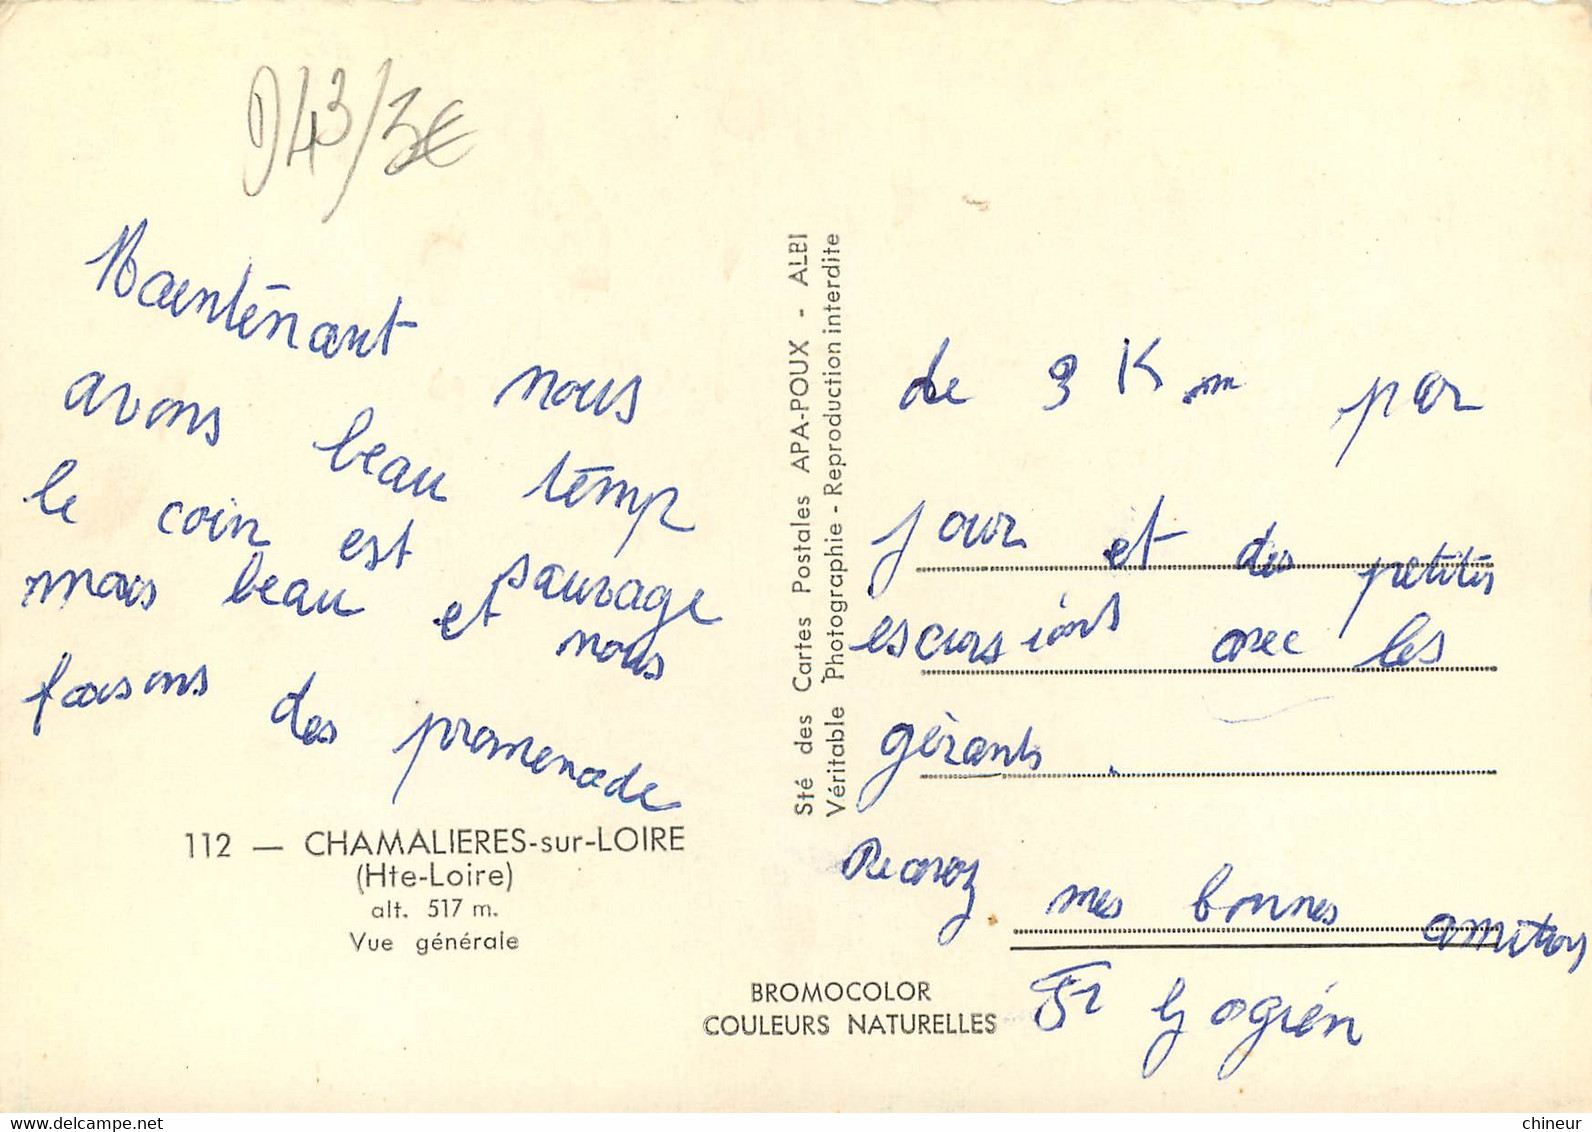 D43/3€
Maintenant nous
avons beau temp
le coin est sauvage
mais beau et nous
faisons des promenade
112 — CHAMALIERES-sur-LOIRE
(Hte-Loire)
alt. 517 m.
Vue générale
Sté des Cartes Postales APA-POUX - ALBI
Véritable Photographie - Reproduction interdite
BROMOCOLOR
COULEURS NATURELLES
de 3 Km par
jour et des petites
escursions avec les
gérants.
Recevez mes bonnes amities
chineur